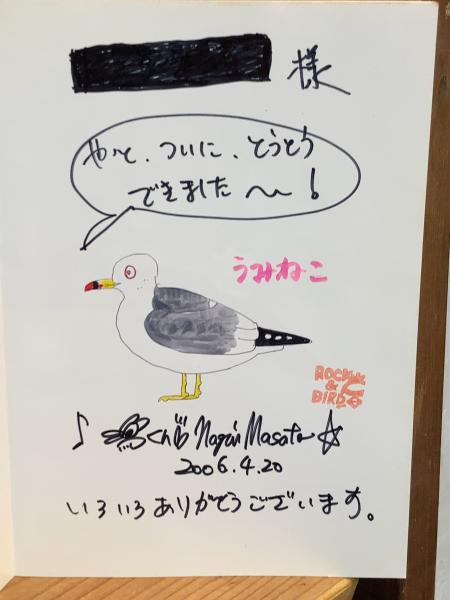 様
やっと、ついに、とうとう
できました〜!
うみねこ
ROCK
&
BIRD
Nagai Masato
2006.4.20
いろいろありがとうございます。